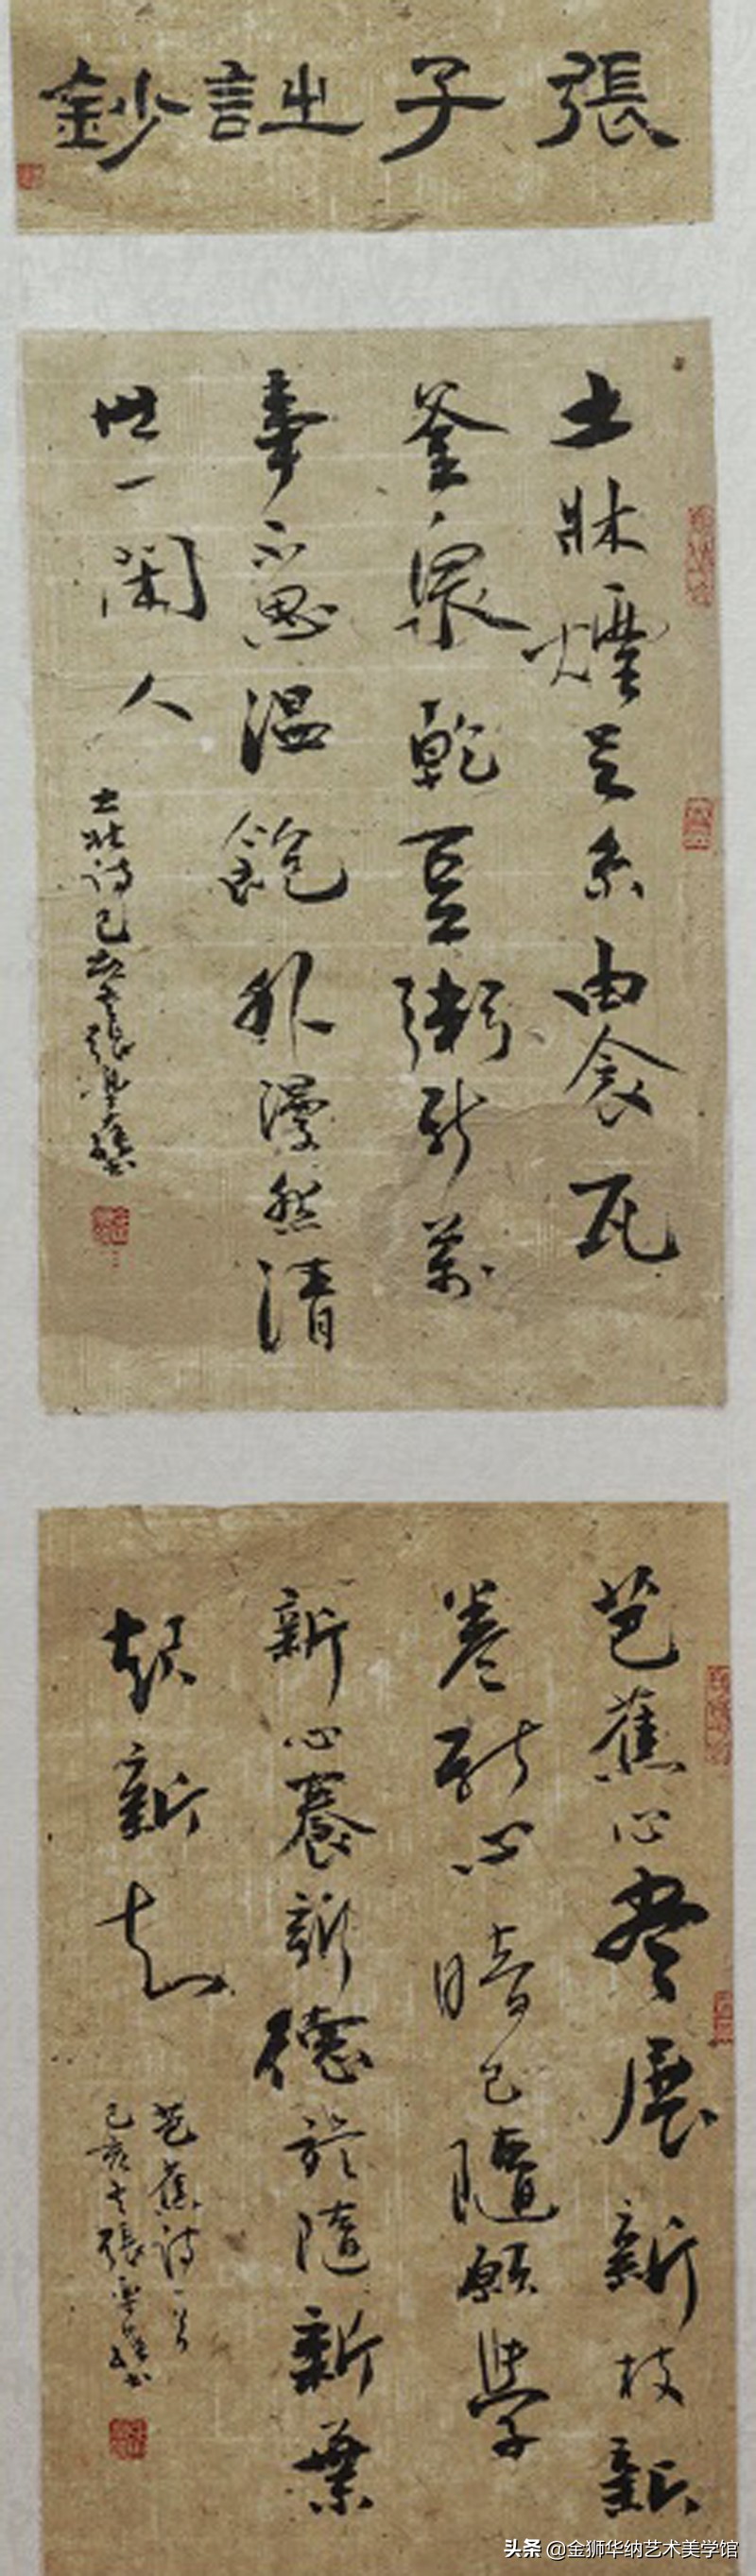 張子詩鈔
土牀煙足紬衾瓦
釜泉乾豆粥新萬
事不思溫飽外漫然清
世一閑人
土牀詩己亥冬張書
芭蕉心盡展新枝新
卷新心暗已隨願學
新心養新德旋隨新葉
起新知
芭蕉詩一首
己亥冬張書
头条 @金狮华纳艺术美学馆